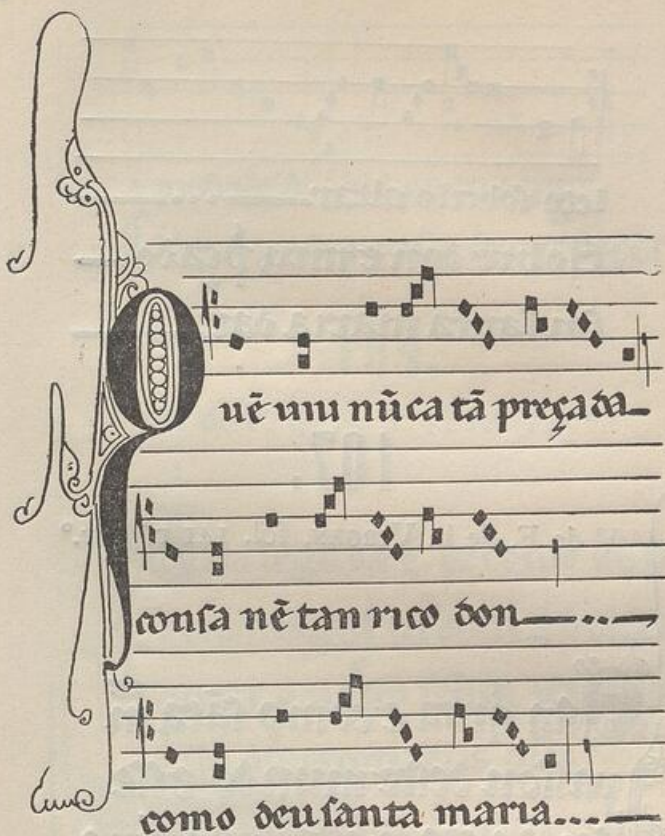 Quẽ viu nũca tã preçada
cousa nẽ tan rico don
como deu santa maria